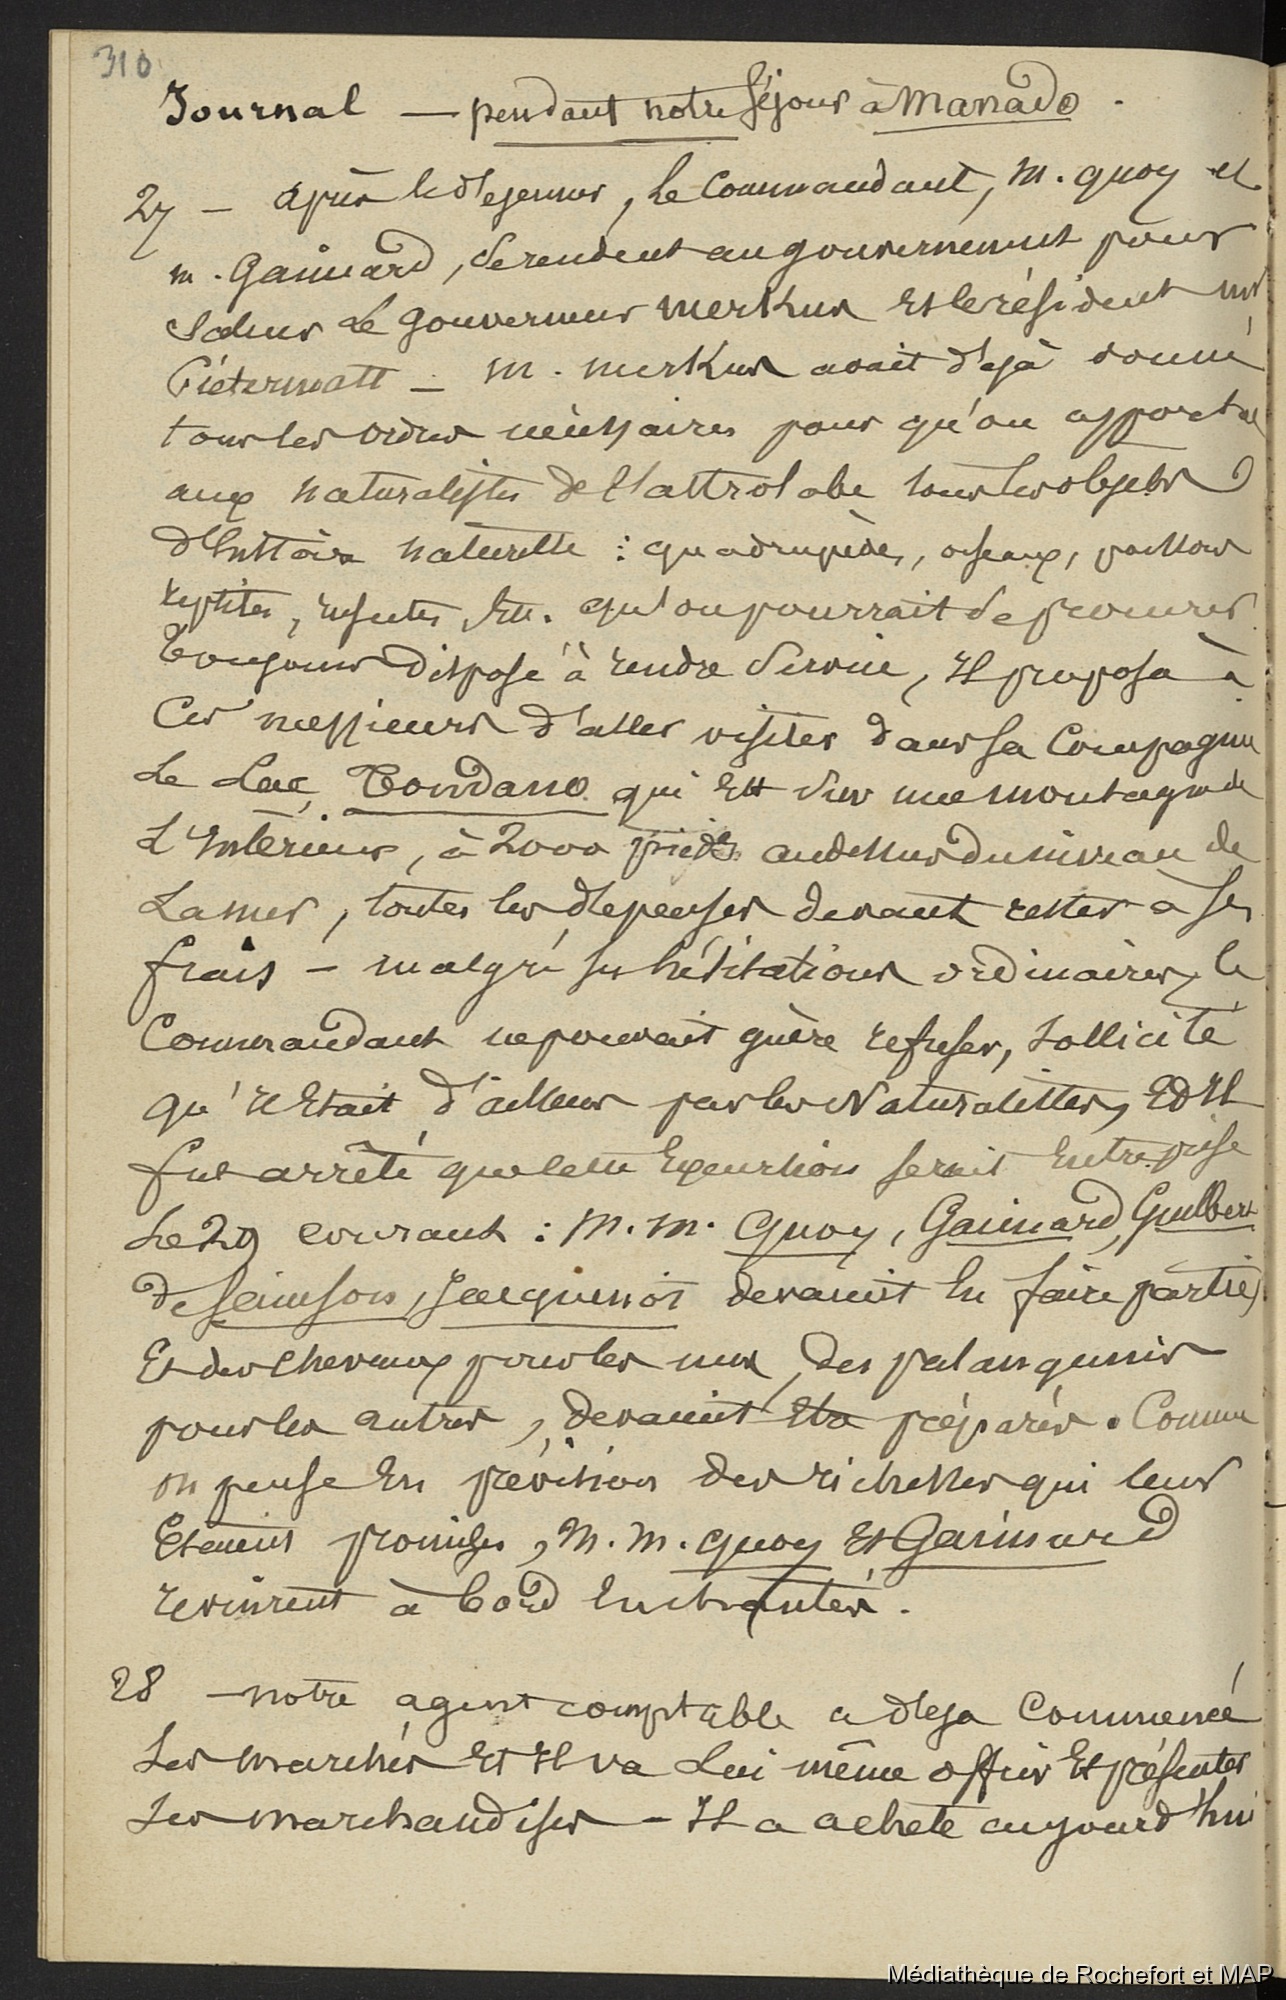 310
Journal — pendant notre séjour à Manado.
27 — après le déjeuner, le Commandant, M. Quoy et
M. Gaimard, se rendent au gouvernement pour
saluer le gouverneur Merkus et le résident Mr
Pietermatt — M. Merkus avait déjà donné
tous les ordres nécessaires pour qu'on apportat
aux naturalistes de l'astrolabe tous les objets
d'histoire naturelle : quadrupèdes, oiseaux, poissons
reptiles, insectes, etc. qu'on pourrait se procurer.
Toujours disposé à rendre service, il proposa à
ces messieurs d'aller visiter dans sa compagnie
le Lac Tondano qui est sur une montagne de
l'intérieur, à 2000 pieds au dessus du niveau de
la mer, toutes les dépenses devant rester à ses
frais — malgré ses hésitations ordinaires, le
Commandant ne pouvait guère refuser, sollicité
qu'il était d'ailleurs par les Naturalistes, et il
fut arrêté que cette excursion serait entreprise
le 29 courant : M. M. Quoy, Gaimard, Guilbert
de Sainson, Jacquinot devaient en faire partie,
et des chevaux pour les uns, des palanquins
pour les autres, devaient être préparés. Comme
on pense en prévision des richesses qui leur
étaient promises, M. M. Quoy et Gaimard
revinrent à bord enchantés.
28 — notre agent comptable a déjà commencé
ses marchés et il va lui même offrir et présenter
ses marchandises — Il a acheté aujourd'hui
Médiathèque de Rochefort et MAP